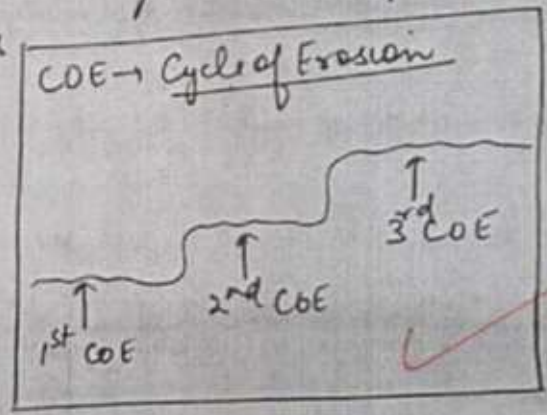 COE → Cycle of Erosion
3rd COE
2nd COE
1st COE